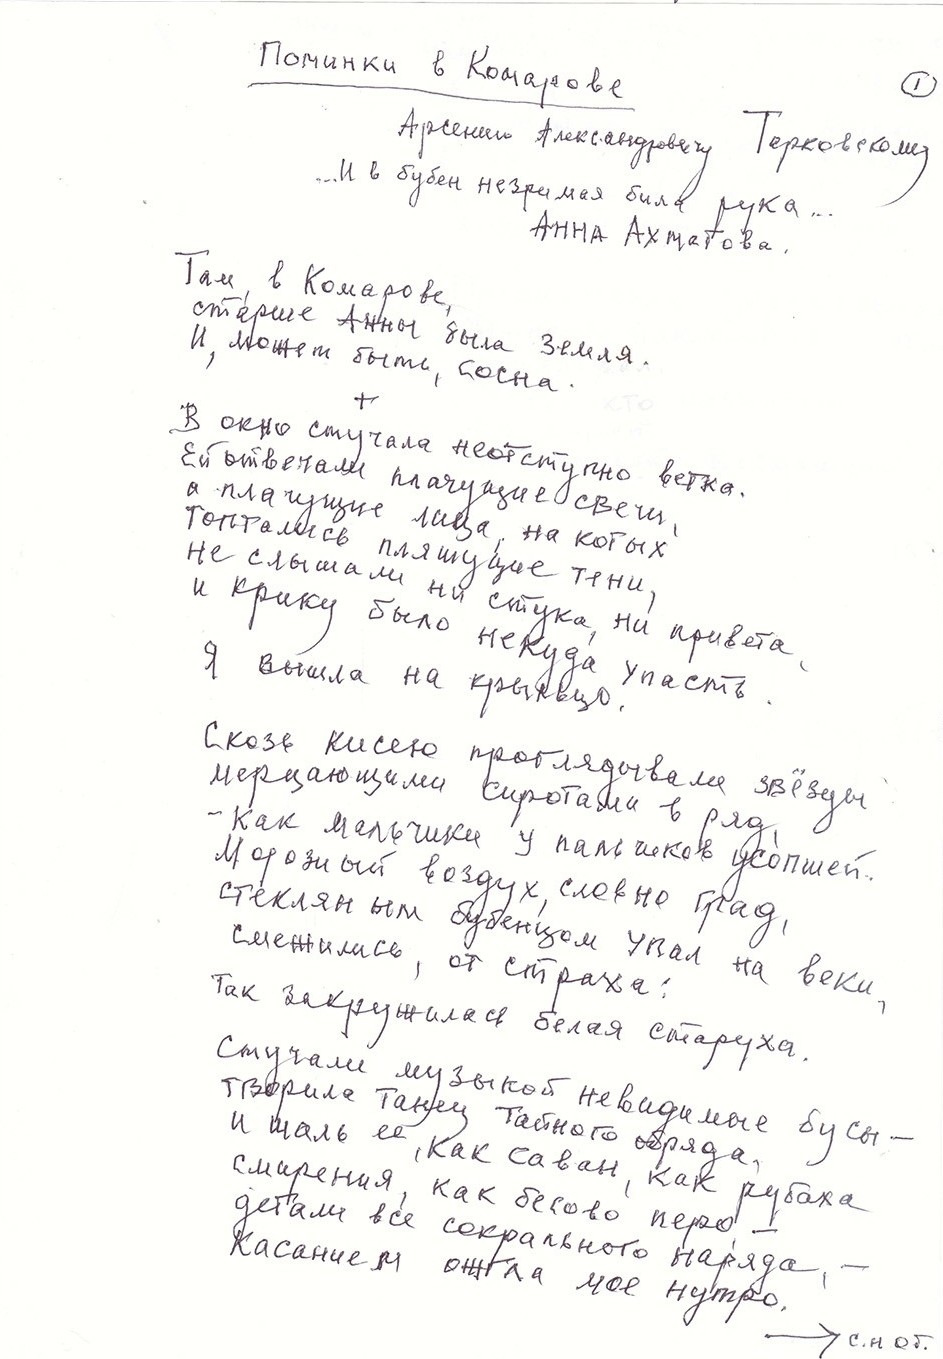 Поминки в Комарове
1
Арсению Александровичу Тарковскому
...И в бубен незримая била рука...
Анна Ахматова.
Там, в Комарове,
старше Анны была Земля.
И, может быть, сосна.
+
В окно стучала неотступно ветка.
Ей отвечали плачущие свечи,
а плачущие лица, на котых
топтались пляшущие тени,
не слышали ни стука, ни привета,
и крику было некуда упасть.
Я вышла на крыльцо.
Скозь кисею проглядывали звёзды
мерцающими сиротами в ряд,
- Как мальчики у пальчиков усопшей..
Морозный воздух, словно град,
стеклянным бубенцом упал на веки,
смежились, от страха:
Так закружилась белая старуха.
Стучали музыкой невидимые бусы —
творила танец тайного обряда,
и шаль её, как саван, как рубаха
смирения, как бесово перо, —
детали все сокрального наряда, —
Касанием ожгла мое нутро.
→ с.н об.